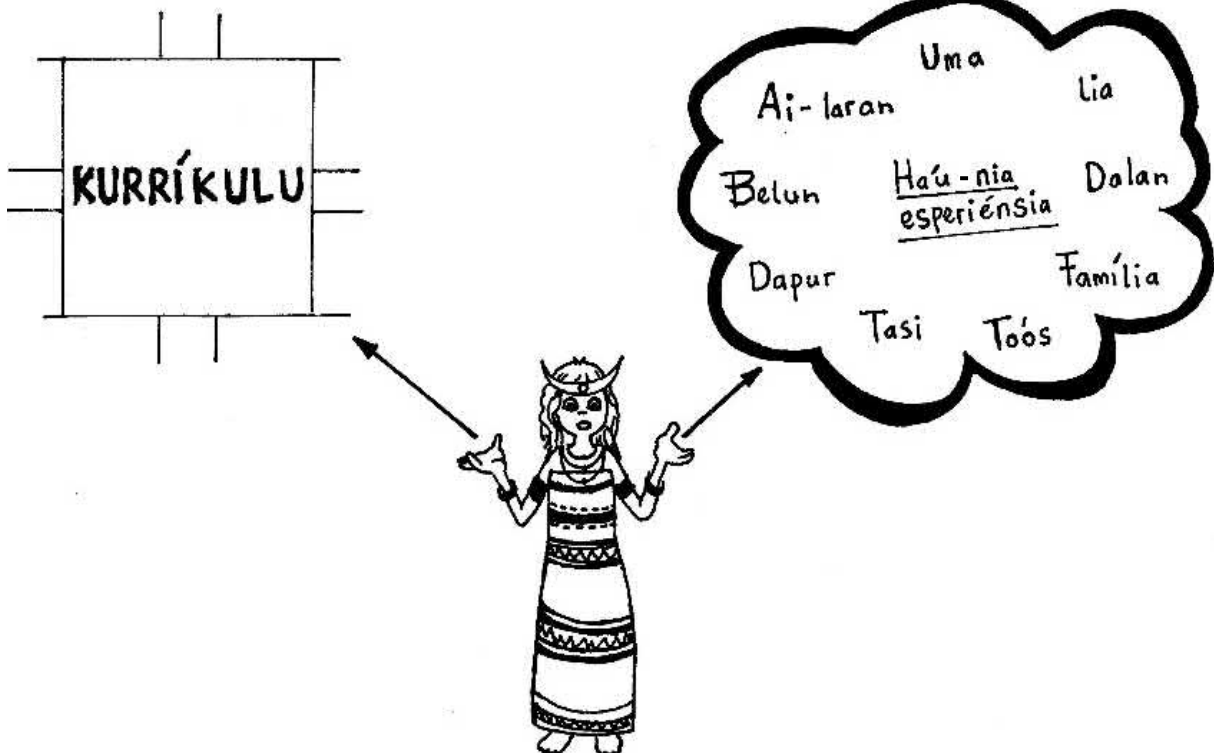 KURRÍKULU
Uma
Ai-laran
Lia
Belun
Haú-nia
esperiénsia
Dalan
Dapur
Família
Tasi
Toós